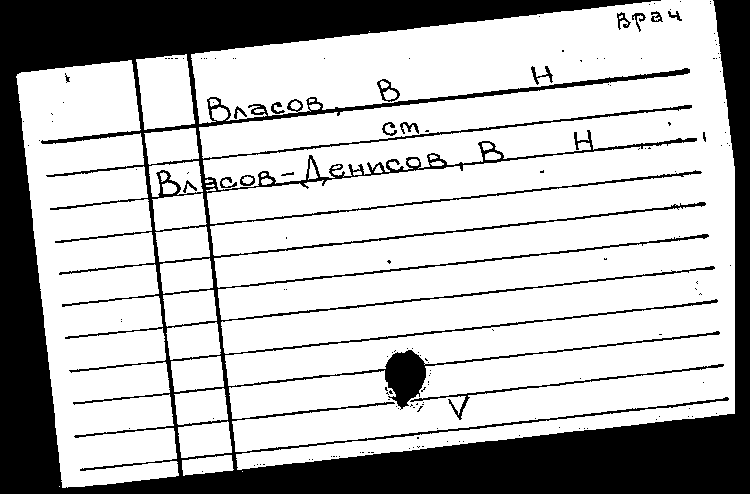 врач
Власов, В Н
ст.
Власов-Денисов, В Н
V